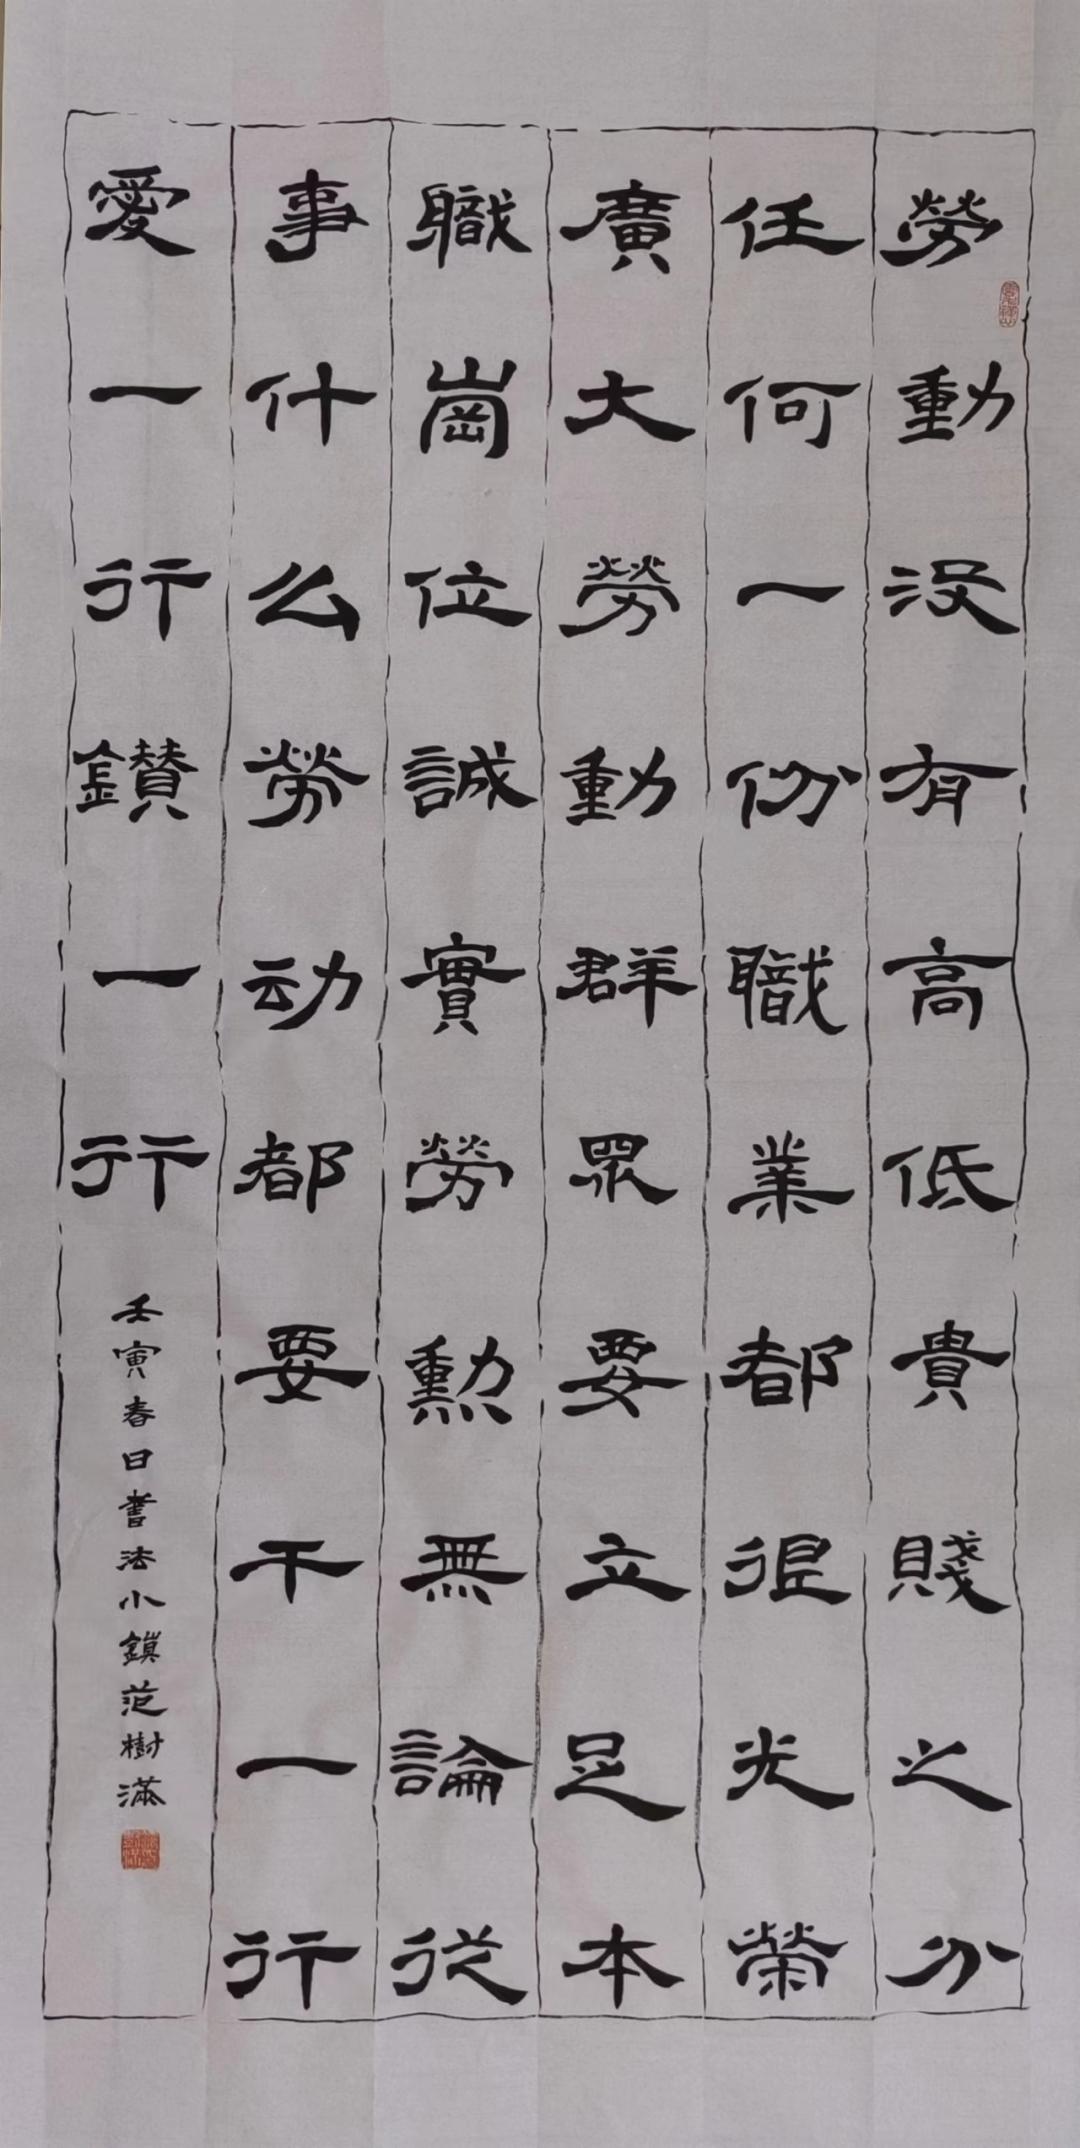 勞動没有高低貴賤之分
任何一份職業都很光榮
廣大勞動群眾要立足本
職崗位誠實勞勳無論從
事什么勞动都要干一行
愛一行鑚一行
壬寅春日書法小鎮范樹滿